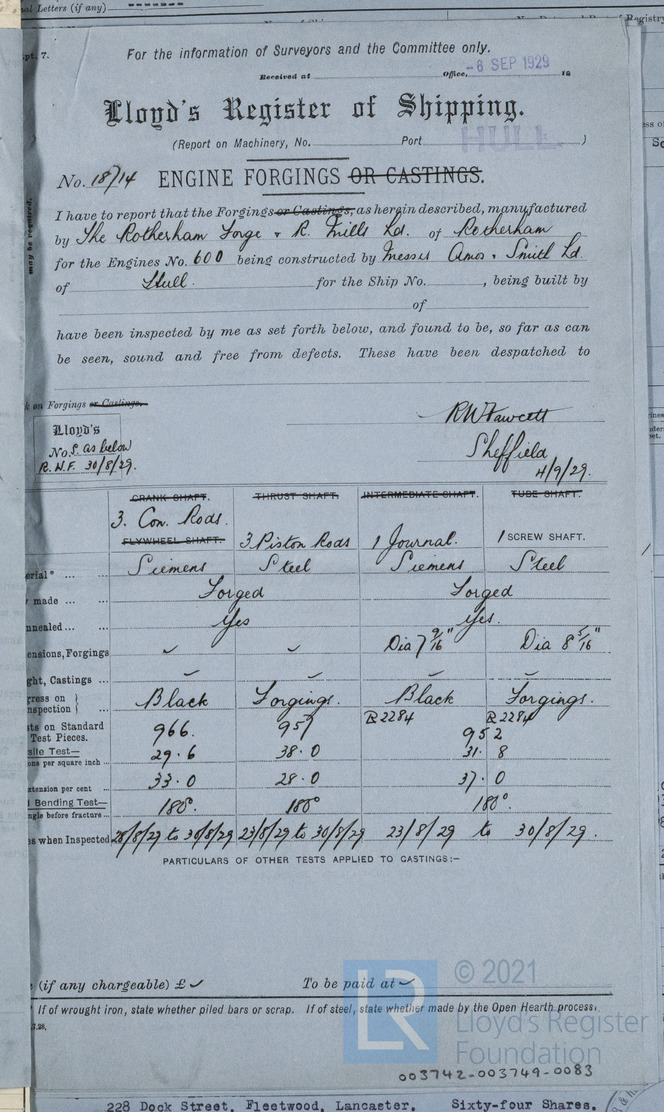 al Letters (if any)
pt. 7.
For the information of Surveyors and the Committee only.
Received at Office, -6 SEP 1929 19
Lloyd's Register of Shipping.
(Report on Machinery, No. Port HULL )
No. 18714 ENGINE FORGINGS OR CASTINGS.
I have to report that the Forgings or Castings, as herein described, manufactured
by The Rotherham Forge & R. Mills Ld. of Rotherham
for the Engines No. 600 being constructed by Messrs Amos & Smith Ld.
of Hull. for the Ship No. , being built by
of
have been inspected by me as set forth below, and found to be, so far as can
be seen, sound and free from defects. These have been despatched to
on Forgings or Castings.
Lloyd's
No.S. as below
R.W.F. 30/8/29.
RW Fawcett
Sheffield
4/9/29.
CRANK SHAFT. THRUST SHAFT. INTERMEDIATE SHAFT. TUBE SHAFT.
3. Con. Rods.
FLYWHEEL SHAFT. 3 Piston Rods 1 Journal. 1 SCREW SHAFT.
erial* Siemens Steel Siemens Steel
made Forged Forged
nnealed Yes Yes.
ensions, Forgings Dia 7 9/16" Dia 8 5/16"
ght, Castings
gress on
nspection Black Forgings. Black Forgings.
ts on Standard R2284 R2284
Test Pieces. 966. 957 952
sile Test— 29.6 38.0 31.8
ons per square inch
xtension per cent 33.0 28.0 37.0
Bending Test— 180°. 180° 180°.
ngle before fracture
s when Inspected 28/8/29 to 30/8/29 23/8/29 to 30/8/29 23/8/29 to 30/8/29.
PARTICULARS OF OTHER TESTS APPLIED TO CASTINGS:—
(if any chargeable) £ To be paid at
* If of wrought iron, state whether piled bars or scrap. If of steel, state whether made by the Open Hearth process,
7.28.
LR
© 2021
Lloyd's Register
Foundation
003742-003749-0083
228 Dock Street, Fleetwood, Lancaster, Sixty-four Shares,